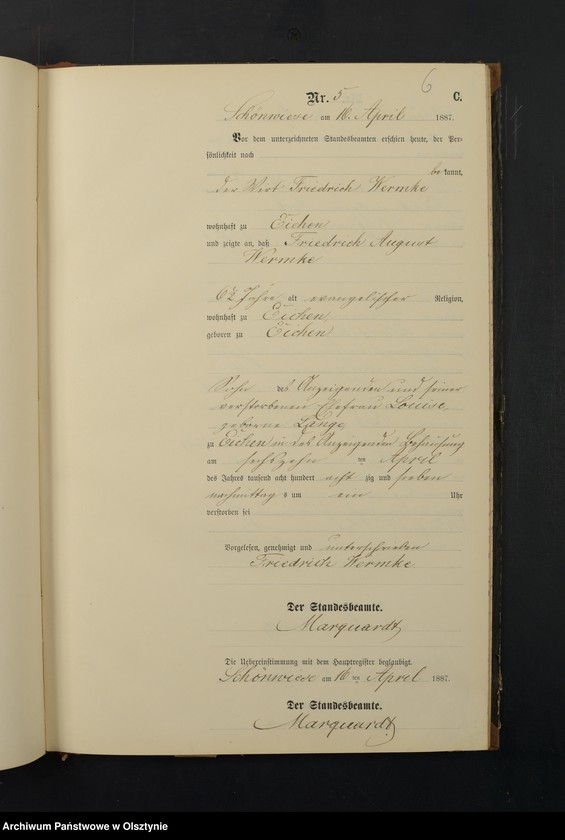 6
Nr. 5 C.
Schönwiese am 16. April 1887.
Vor dem unterzeichneten Standesbeamten erschien heute, der Per-
sönlichkeit nach
be kannt,
der Wirt Friedrich Wermke
wohnhaft zu Eichen
und zeigte an, daß Friedrich August
Wermke
Jahre alt evangelischer Religion,
wohnhaft zu Eichen
geboren zu Eichen
Sohn des Anzeigenden und seiner
verstorbenen Ehefrau Louise,
geborne Lange
zu Eichen in des Anzeigenden Behausung
am sechszehn ten April
des Jahres tausend acht hundert acht zig und sieben
nachmittag s um ein Uhr
verstorben sei
Vorgelesen, genehmigt und unterschrieben
Friedrich Wermke
Der Standesbeamte.
Marquardt
Die Uebereinstimmung mit dem Hauptregister beglaubigt.
Schönwiese am 16 ten April 1887.
Der Standesbeamte.
Marquardt
Archiwum Państwowe w Olsztynie